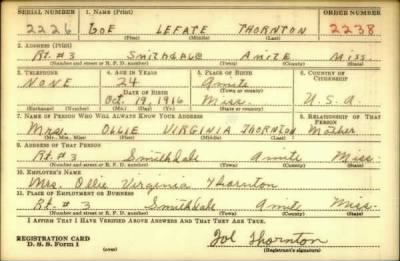 SERIAL NUMBER 1. NAME (Print) ORDER NUMBER
2226 JOE LEFATE THORNTON 2238
(First) (Middle) (Last)
2. ADDRESS (Print)
Rt. #3 SMITHDALE AMITE MISS.
(Number and street or R. F. D. number) (Town) (County) (State)
3. TELEPHONE 4. AGE IN YEARS 5. PLACE OF BIRTH 6. COUNTRY OF CITIZENSHIP
NONE 24 Amite
DATE OF BIRTH (Town or county)
Oct. 19, 1916 Miss. U.S.A.
(Exchange) (Number) (Mo.) (Day) (Yr.) (State or country)
7. NAME OF PERSON WHO WILL ALWAYS KNOW YOUR ADDRESS 8. RELATIONSHIP OF THAT PERSON
Mrs. OLLIE VIRGINIA THORNTON Mother
(Mr., Mrs., Miss) (First) (Middle) (Last)
9. ADDRESS OF THAT PERSON
Rt. #3 Smithdale Amite Miss.
(Number and street or R. F. D. number) (Town) (County) (State)
10. EMPLOYER'S NAME
Mrs. Ollie Virginia Thornton
11. PLACE OF EMPLOYMENT OR BUSINESS
Rt. #3 Smithdale Amite Miss.
(Number and street or R. F. D. number) (Town) (County) (State)
I AFFIRM THAT I HAVE VERIFIED ABOVE ANSWERS AND THAT THEY ARE TRUE.
REGISTRATION CARD
D. S. S. Form 1 (over) Joe Thornton
(Registrant's signature)